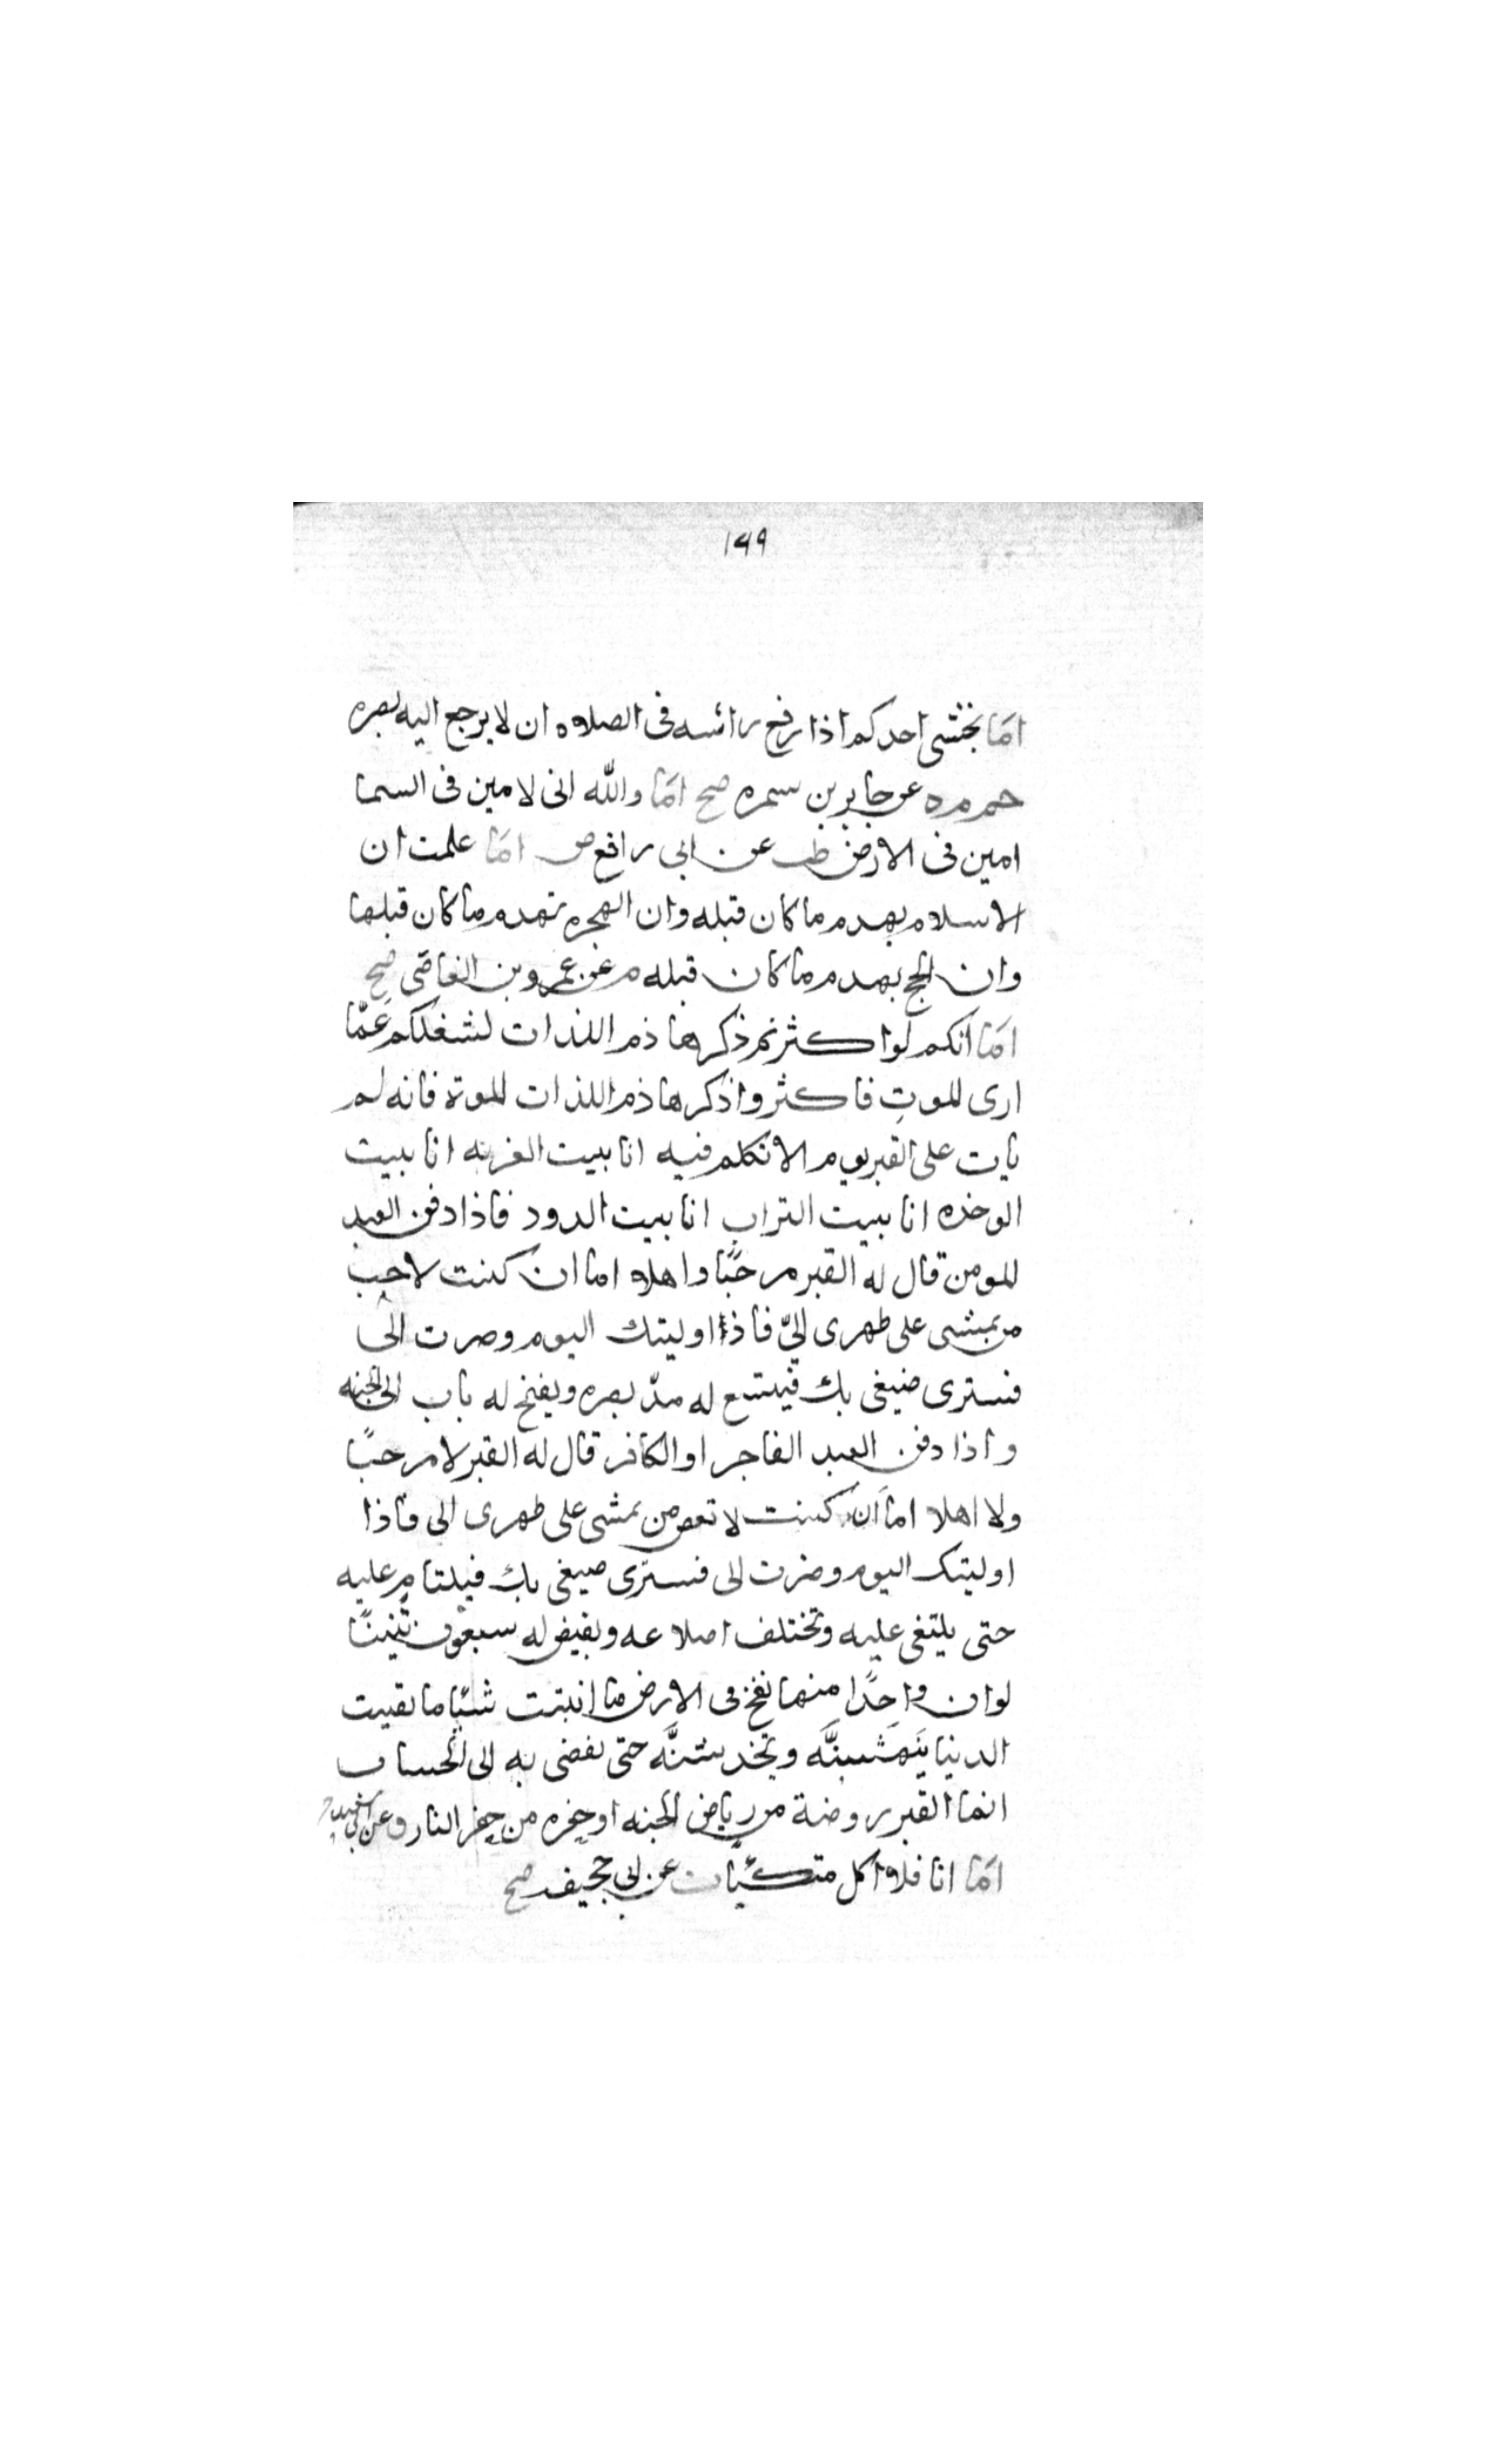 ١٤٩
اما يخشى احدكم اذا رفع رائسه فى الصلاه ان لا يرجع اليه بصره
حم م ه عن جابر بن سمره صح اما والله انى لامين فى السما
امين فى الارض طب عن ابى رافع ض اما علمت ان
الاسلام يهدم ما كان قبله وان الهجره تهدم ما كان قبلها
وان الحج يهدم ما كان قبله م عن عمرو بن العاصى صح
اما انكم لو اكثرتم ذكر هاذم اللذات لشغلكم عمّا
ارى الموتِ فاكثروا ذكر هاذم اللذات الموت فانه لم
يات على القبر يوم الا تكلم فيه انا بيت الغربه انا بيت
الوحده انا بيت التراب انا بيت الدود فاذا دفن العبد
المومن قال له القبر مرحبًا واهلا اما ان كنت لاحب
من يمشى على طهرى اليّ فاذا اوليتك اليوم وصرت الى
فسترى صنيعى بك فيتسع له مدّ بصره ويفتح له باب الى الجنه
واذا دفن العبد الفاجر او الكافر قال له القبر لا مرحبًا
ولا اهلا اما ان كنت لا بعض من يمشى على طهرى الى فاذا
اوليتك اليوم وصرت الى فسترى صنيعى بك فيلتام عليه
حتى يلتقى عليه وتختلف اضلاعه ويقيض له سبعون تنينًا
لو ان واحدًا منها نفخ فى الارض ما انبتت شيًا ما بقيت
الدنيا ينهشنَّه ويخدشنَّه حتى يفضى به الى الحساب
انما القبر روضة من رياض الجنه او حفره من حفر النار ت عن ابى سعيد
اما انا فلا اكل متكئًا ت عن ابى جحيفه صح